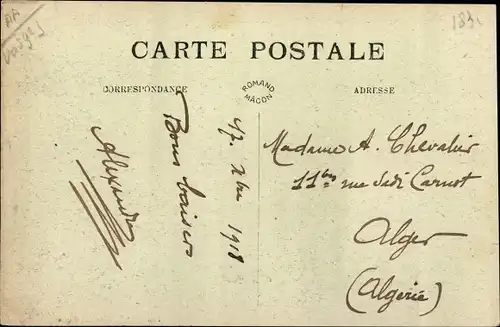 CARTE POSTALE
CORRESPONDANCE
ROMAND
MÂCON
ADRESSE
1918
Bons baisers
Alexandre
Madame A. Chevalier
11bis rue Sadi Carnot
Alger
(Algérie)